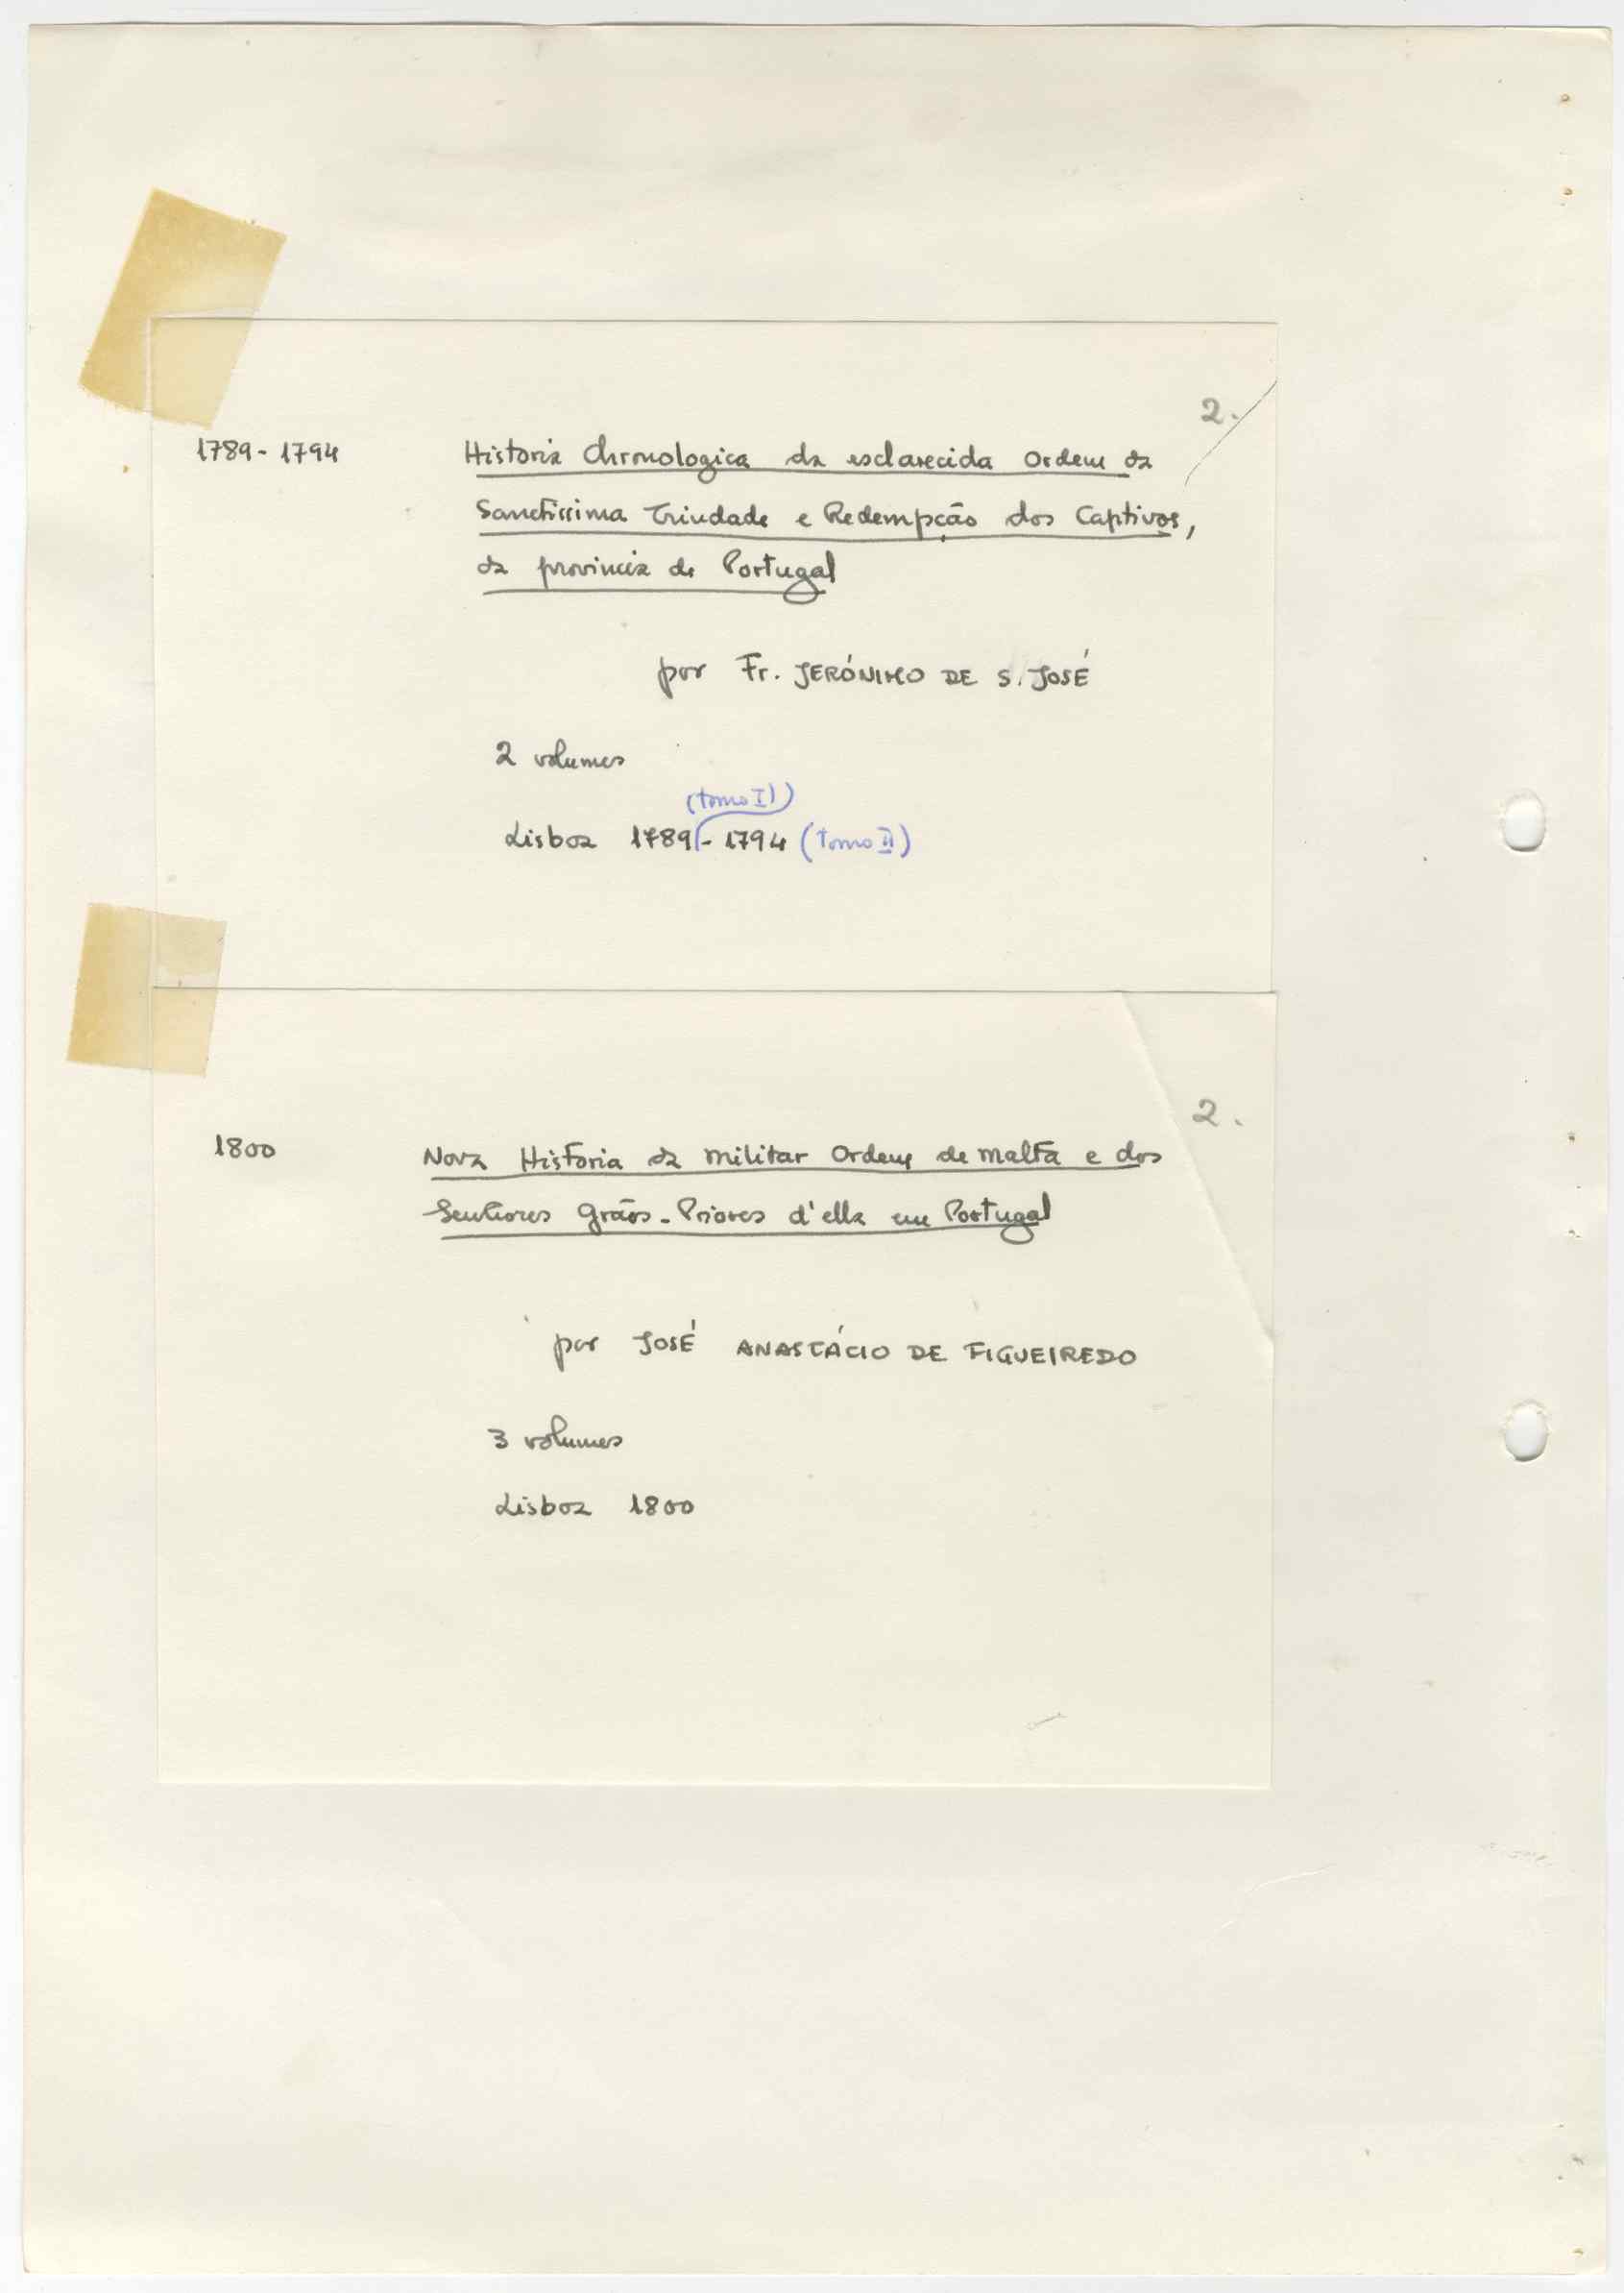 2.
1789-1794 Historia Chronologica da esclarecida Ordem da
Sanctissima Trindade e Redempção dos Captivos,
da provincia de Portugal
por Fr. JERÓNIMO DE S. JOSÉ
2 volumes
(tomo I)
Lisboa 1789 - 1794 (tomo II)
2.
1800 Nova Historia da militar Ordem de Malta e dos
Senhores Grãos-Priores d'ella em Portugal
por JOSÉ ANASTÁCIO DE FIGUEIREDO
3 volumes
Lisboa 1800